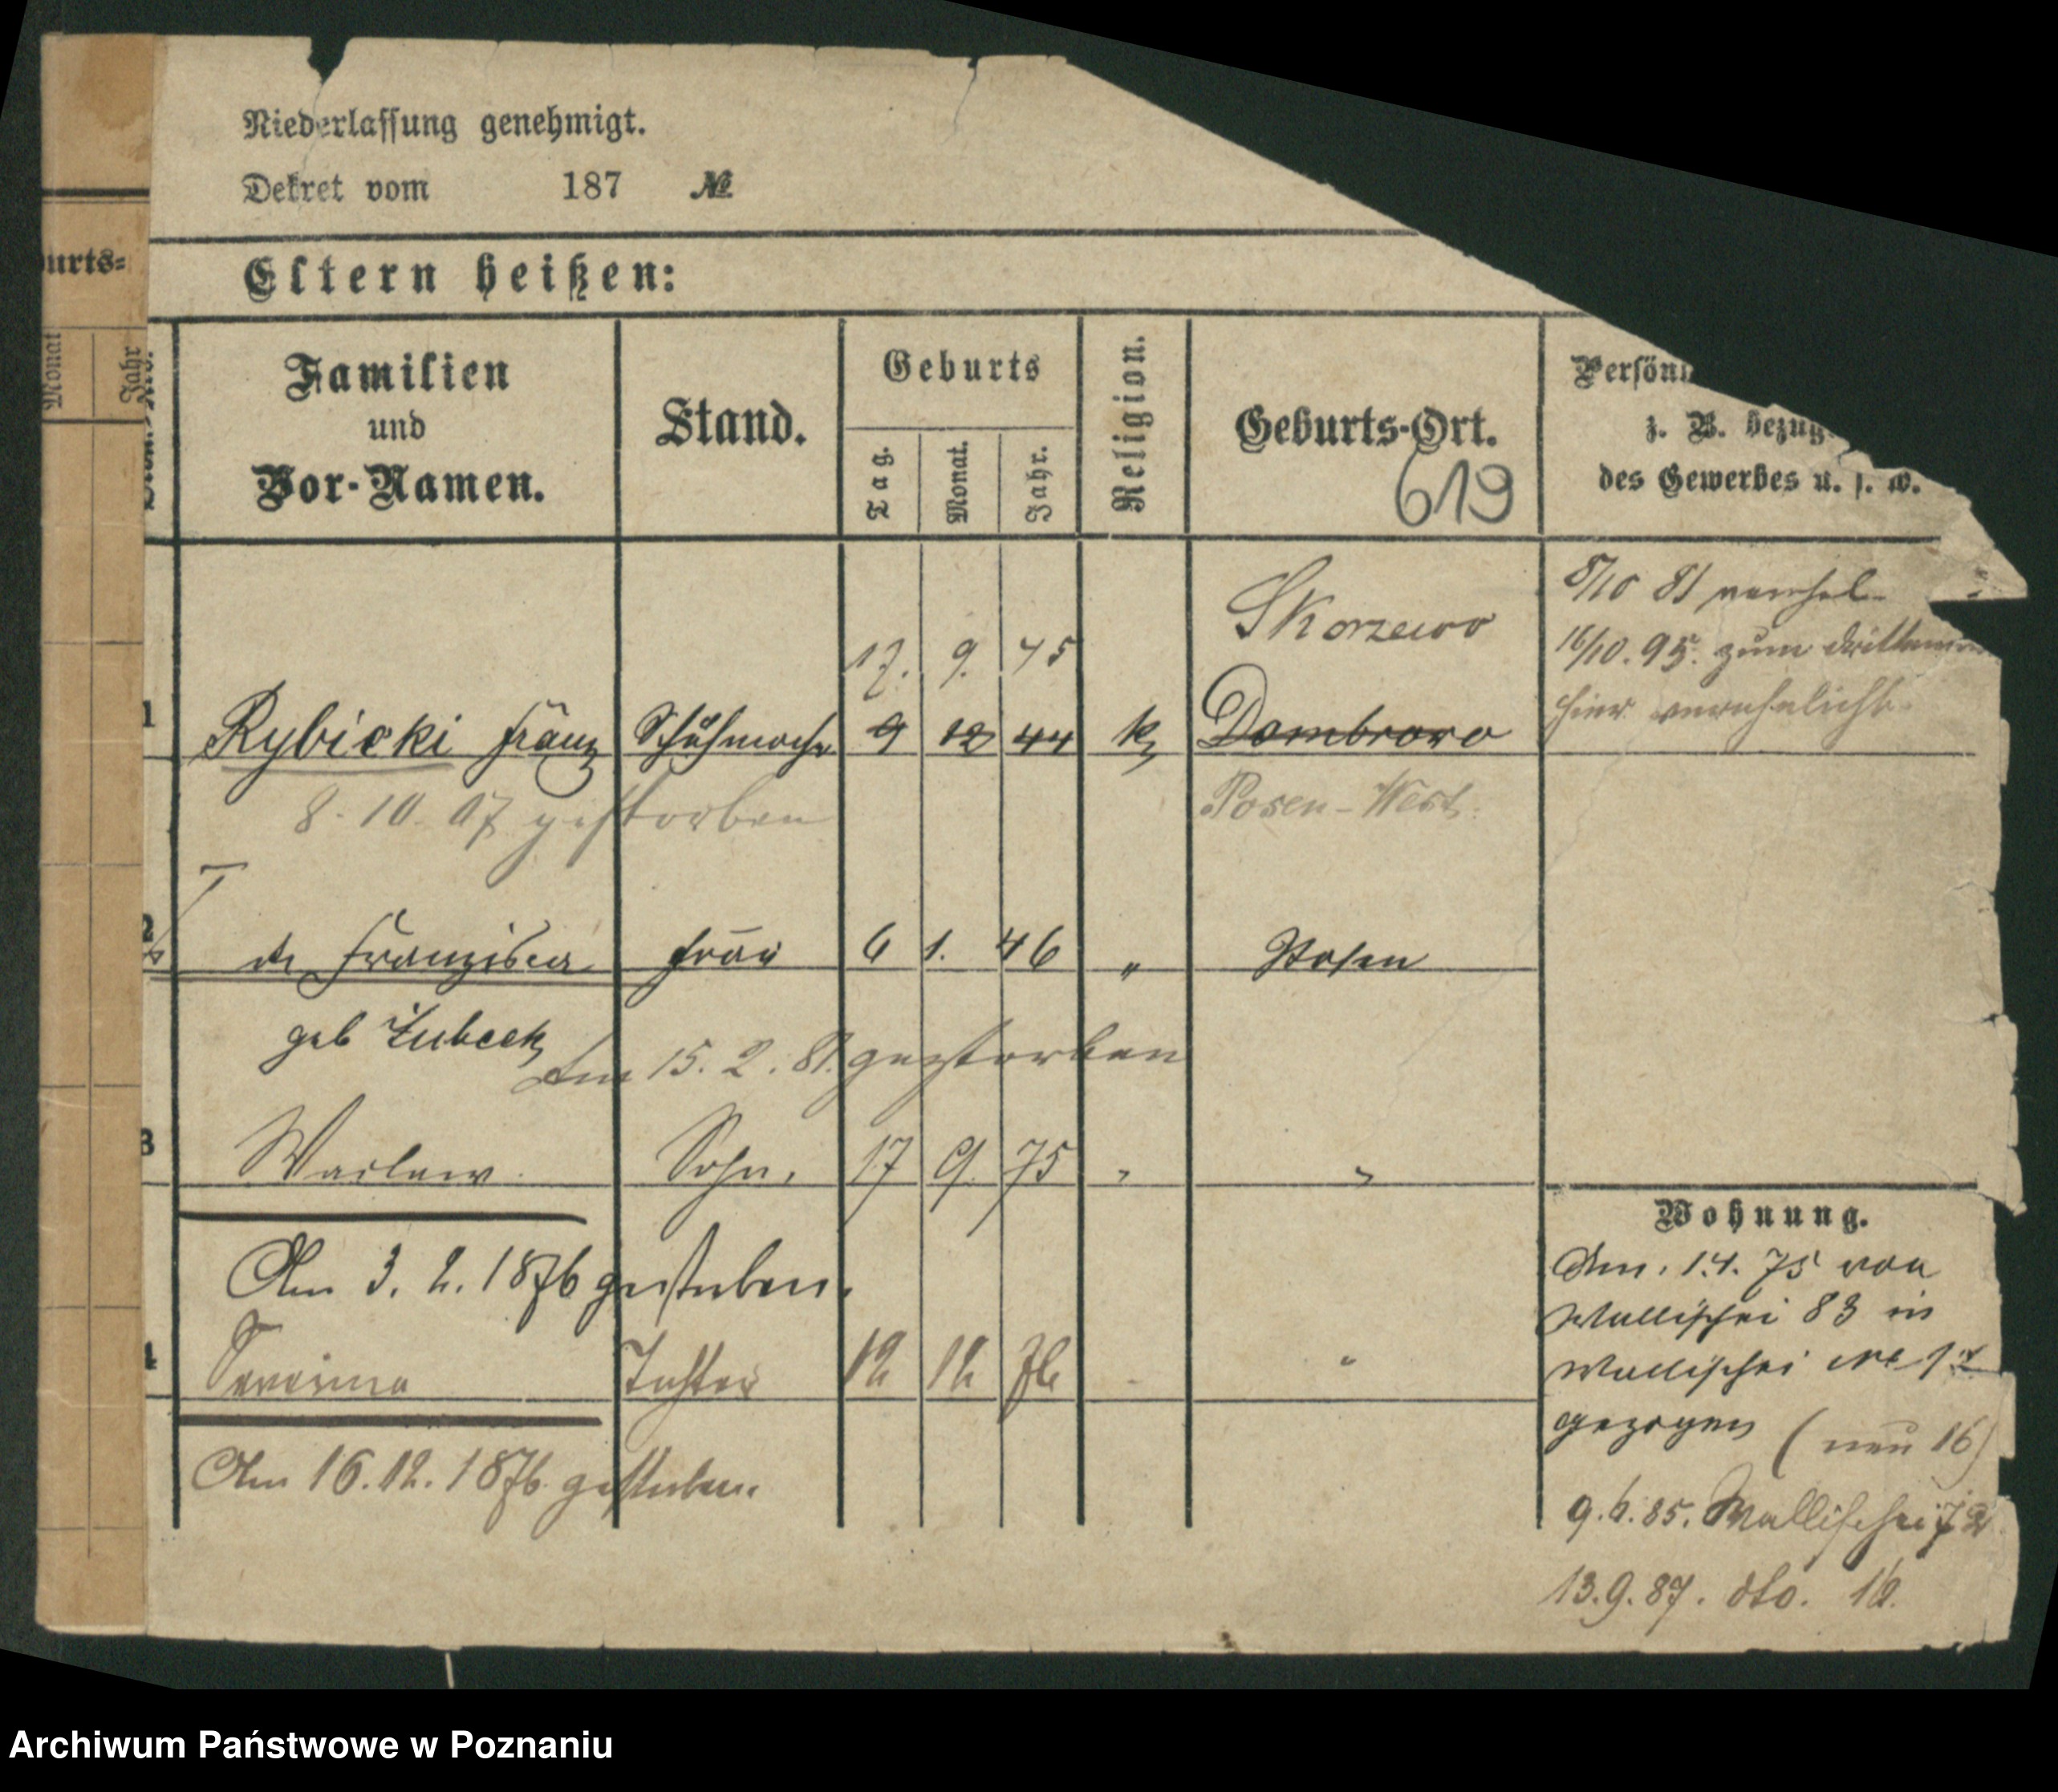 Niederlassung genehmigt.
Dekret vom 187 №
urts=
Eltern heißen:
Monat
Jahr
Familien
und
Vor-Namen.
Stand.
Geburts
Tag.
Monat.
Jahr.
Religion.
Geburts-Ort.
619
Persön
z. B. bezug
des Gewerbes u. s. w.
Skorzewo
5/10 81 verehel-
17. 9. 45
16/10. 95. zum
hier verehelicht.
1 Rybicki Franz Schuhmacher 9 12 44 k Dombrowo
8. 10. 07 gestorben
Posen-West.
2 Franziska Frau 6 1. 46 " Posen
geb
am 15. 2. 81. gestorben
3 Waclaw Sohn. 17 9 75 " "
Wohnung.
Am 3. 2. 1876 gestorben.
Am. 1.4. 75 von
Wallischei 83 in
4 Tochter 12 12 76 "
Wallischei No
gezogen (neu 16)
Am 16.12.1876 gestorben.
9.6.85. Wallischei 72
13.9.87. dto. 16.
Archiwum Państwowe w Poznaniu